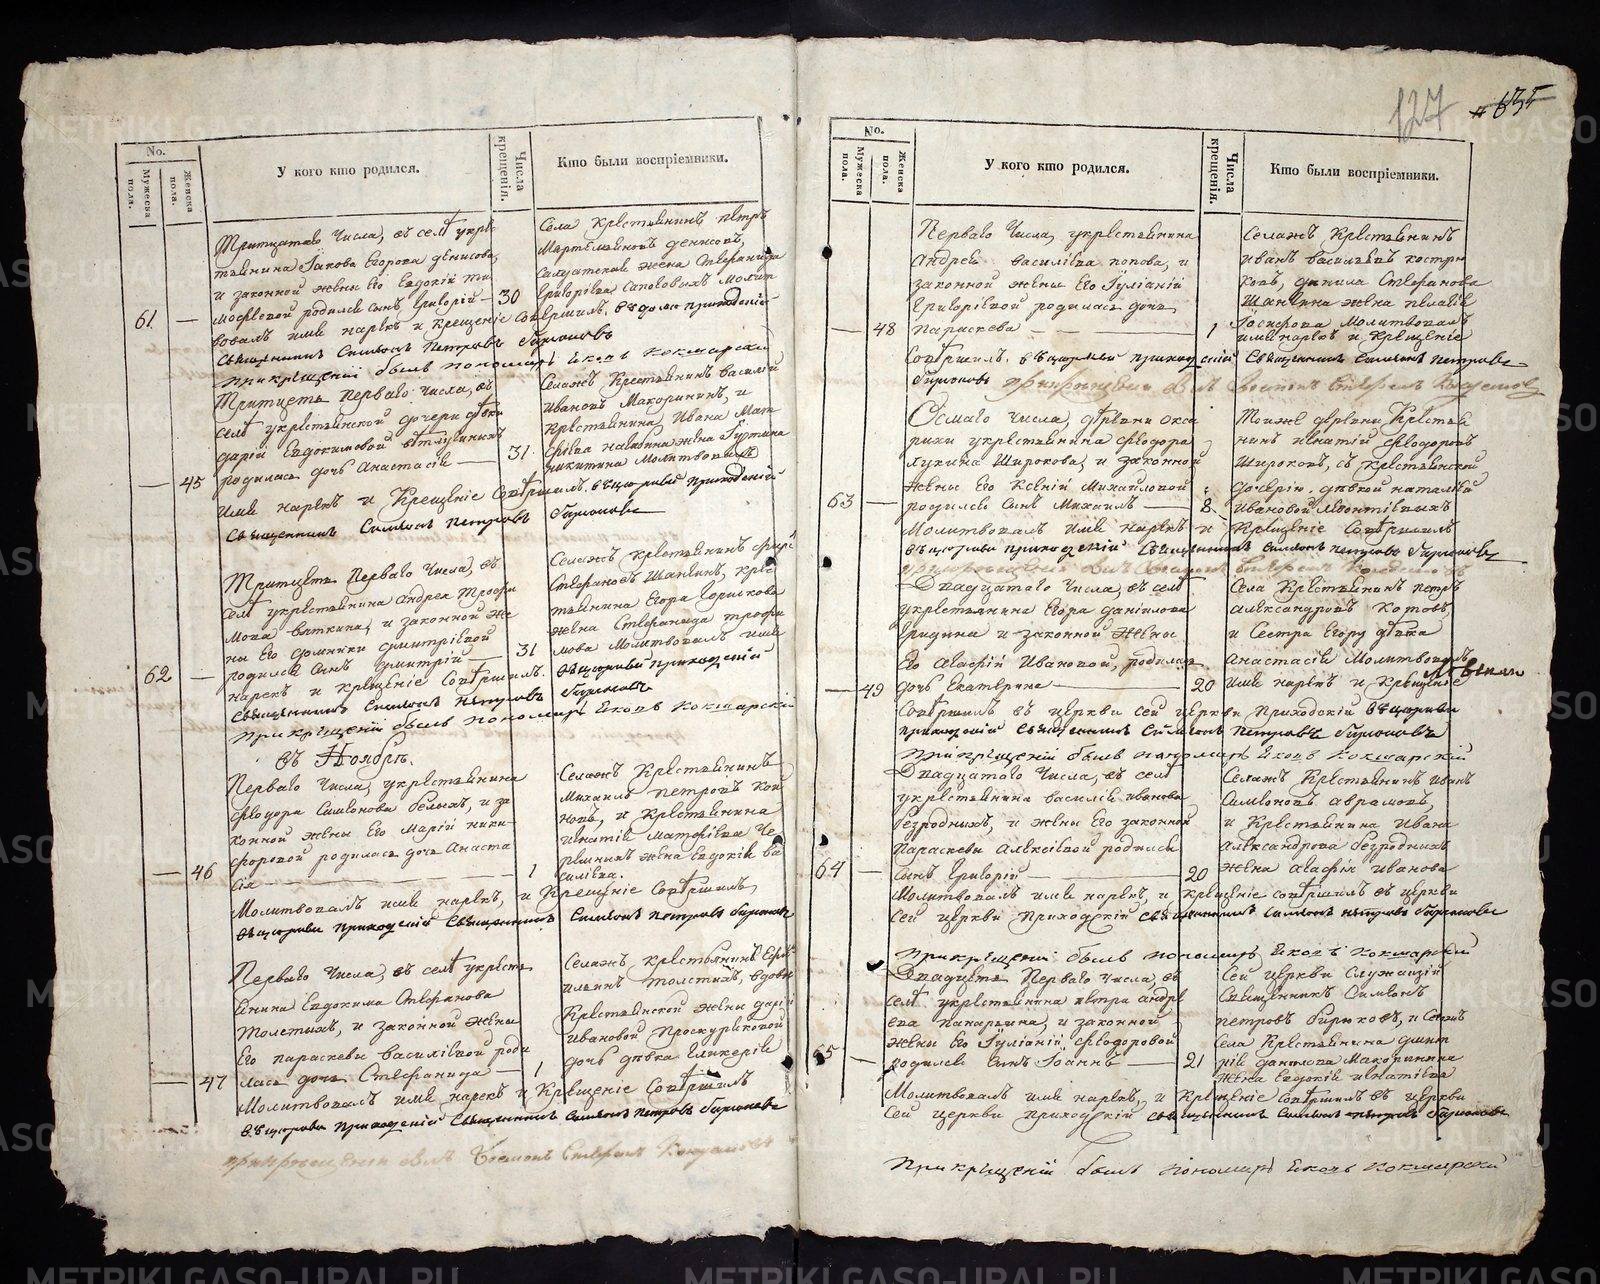 127
635
No.
Мужеска пола.
Женска пола.
У кого кто родился.
Числа крещенія.
Кто были воспріемники.
Тритцатаго Числа, въ селѣ укресть
тьянина Іакова Егорова денисова,
и законной жены его Евдокіи Ти
мофѣевой родился сынъ Григорій — 30
61 —
вовалъ имя нарѣкъ и крещеніе совершилъ, въ домѣ приходскій
Священникъ Симеонъ Петровъ Бирюковъ
При крещеніи былъ пономарь Яковъ Кокшарскій
Села Крестьянинъ Петръ
денисовъ,
Салдатская жена Степанида
Григорьева Молит
Тритцать Перваго числа, въ
селѣ укрестьянской дочери дѣвки
дарьи Евдокимовой
родилась дочь Анастасія — 31
— 45
имя нарѣкъ и Крещеніе Совершилъ, въ церкви приходскій
Священникъ Симеонъ Петровъ Бирюковъ
Селажъ Крестьянинъ василій
Ивановъ Макоринъ, и
Крестьянина Ивана Мат
фѣева жена
никитина Молитвовалъ
Тритцать Перваго Числа, въ
селѣ укрестьянина Андрея Трофи
мова вяткина, и законной же
ны его домники дмитріевой
родился сынъ дмитрій — 31
62 —
нарекъ и крещеніе Совершилъ въ церкви приходскій
Священникъ Симеонъ Петровъ Бирюковъ
При крещеніи былъ пономарь Яковъ Кокшарскій
Селажъ крестьянинъ
Стефановъ Шангинъ, крес
тьянина Егора
жена Степанида трофи
мова Молитвовалъ имя
въ Ноябрѣ.
Перваго Числа, укрестьянина
Феодора Симеонова белыхъ, и за
конной жены его Маріи ники-
форовой родилась дочь Анаста
сія — 1
— 46
Молитвовалъ имя нарѣкъ, и Крещеніе Совершилъ,
въ церкви приходскій Священникъ Симеонъ Петровъ Бирюковъ
Селажъ Крестьянинъ
Михаилъ Петровъ Кон
новъ, и Крестьянина
игнатія Матфѣева Че
ремныхъ жена Евдокія ва
сильева.
Перваго Числа, въ селѣ укресть
янина Евдокима Стефанова
Толстыхъ, и законной жены
Его параскевы василіевой роди
лась дочь Степанида — 1
— 47
Молитвовалъ имя нарекъ и Крещеніе Совершилъ
въ церкви Приходскій Священникъ Симеонъ Петровъ Бирюковъ
при крещеніи былъ Стефанъ
Селажъ крестьянинъ
Толстыхъ, вдовы
Крестьянской жены дарьи
Ивановой Проскуряковой
дочь дѣвка Гликерія
No.
Мужеска пола.
Женска пола.
У кого кто родился.
Числа крещенія.
Кто были воспріемники.
Перваго Числа, укрестьянина
Андрея василіева попова, и
законной жены его Іуліаніи
Григоріевой родилась дочь
— 48 Параскева — 1
Совершилъ, въ церкви приходскій Священникъ Симеонъ Петровъ
Бирюковъ при крещеніи былъ Стефанъ
Селажъ Крестьянинъ
иванъ васильевъ костры
ковъ, данила Стефанова
Шангина жена пелагія
Іосифова Молитвовалъ
имя нарекъ и Крещеніе
Осмаго Числа, деревни окса
рихи укрестьянина Феодора
лукина Широкова, и законной
жены его Ксеніи Михайловой
63 — родился сынъ Михаилъ — 8
Молитвовалъ имя нарекъ и Крещеніе Совершилъ
въ церкви приходскій Священникъ Симеонъ Петровъ Бирюковъ
Тоижъ деревни Крестья
нинъ игнатій Феодоровъ
Широковъ, съ крестьянской
дочерію дѣвкой наталіей
Ивановой
Двадцатаго Числа, въ селѣ
укрестьянина Егора даніилова
Гридина и законной жены
Его Агафіи Ивановой, родилась
— 49 дочь Екатерина — 20
Совершилъ въ церкви сей церкви Приходскій въ церкви
приходскій Священникъ Симеонъ Петровъ Бирюковъ
При крещеніи былъ пономарь Яковъ Кокшарскій
Села Крестьянинъ петръ
Александровъ Котовъ,
и Сестра Егору дѣвка
Анастасія Молитвовалъ
имя нарекъ и Крещеніе
Двадцатаго Числа, въ селѣ
укрестьянина василія иванова
безродныхъ, и жены его законной
Параскевы Алексіевой родился
64 — сынъ Григорій — 20
Молитвовалъ имя нарекъ, и Крещеніе совершилъ въ церкви
Сей церкви Приходскій Священникъ Симеонъ Петровъ Бирюковъ
При крещеніи былъ пономарь Яковъ Кокшарскій
Селажъ Крестьянинъ иванъ
Симеоновъ аврамовъ,
и Крестьянина ивана
Александрова безродныхъ
жена Агафія иванова
Двадцать Перваго Числа, въ
селѣ укрестьянина петра андре
ева панарьина, и законной
жены его Іуліаніи Феодоровой
65 — родился сынъ Іоаннъ — 21
Молитвовалъ имя нарекъ, и Крещеніе совершилъ въ церкви
Сей церкви приходскій Священникъ Симеонъ Петровъ Бирюковъ
При крещеніи былъ пономарь Яковъ Кокшарскій
Сей церкви Служащій
Священникъ Симеонъ
петровъ Бирюковъ, и
Села Крестьянина дмит
рія данилова Макорина
жена Евдокія игнатіева
METRIKI.GASO-URAL.RU